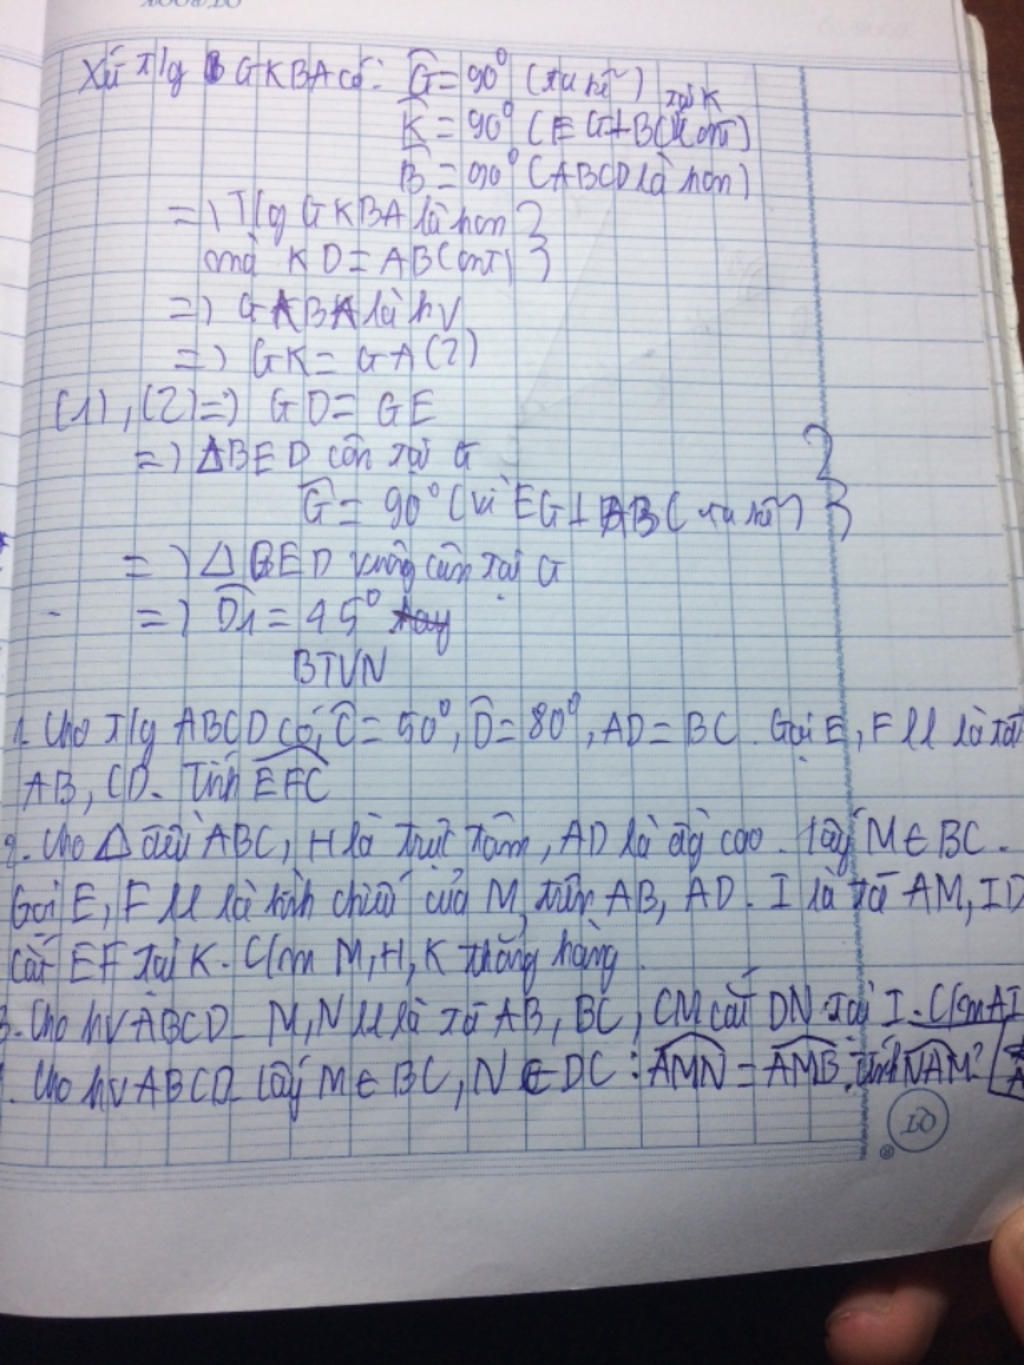 Xét T/g GKBA có: Ĝ = 90° (
tại K
K̂ = 90° (EG⊥BC
B̂ = 90° (ABCD là hcn)
=> T/g GKBA là hcn }
mà KD = AB (cmt) }
=> GKBA là hv
=> GK = GA (2)
(1), (2) => GD = GE
=> ΔBED cân tại G
Ĝ = 90° (vì EG ⊥ AB (
=> ΔGED vuông cân tại G
=> D̂1 = 45°
BTVN
1. Cho T/g ABCD có Ĉ = 50°, D̂ = 80°, AD = BC. Gọi E, F ll là tđ
AB, CD. Tính EFC
2. Cho Δ đều ABC, H là trực tâm, AD là đg cao. Lấy M ∈ BC.
Gọi E, F ll là hình chiếu của M trên AB, AD. I là tđ AM, ID
cắt EF tại K. C/m M, H, K thẳng hàng.
3. Cho hv ABCD. M, N ll là tđ AB, BC, CM cắt DN tại I. C/m AI
Cho hv ABCD. Lấy M ∈ BC, N ∈ DC : AMN = AMB. Tính NAM?
10